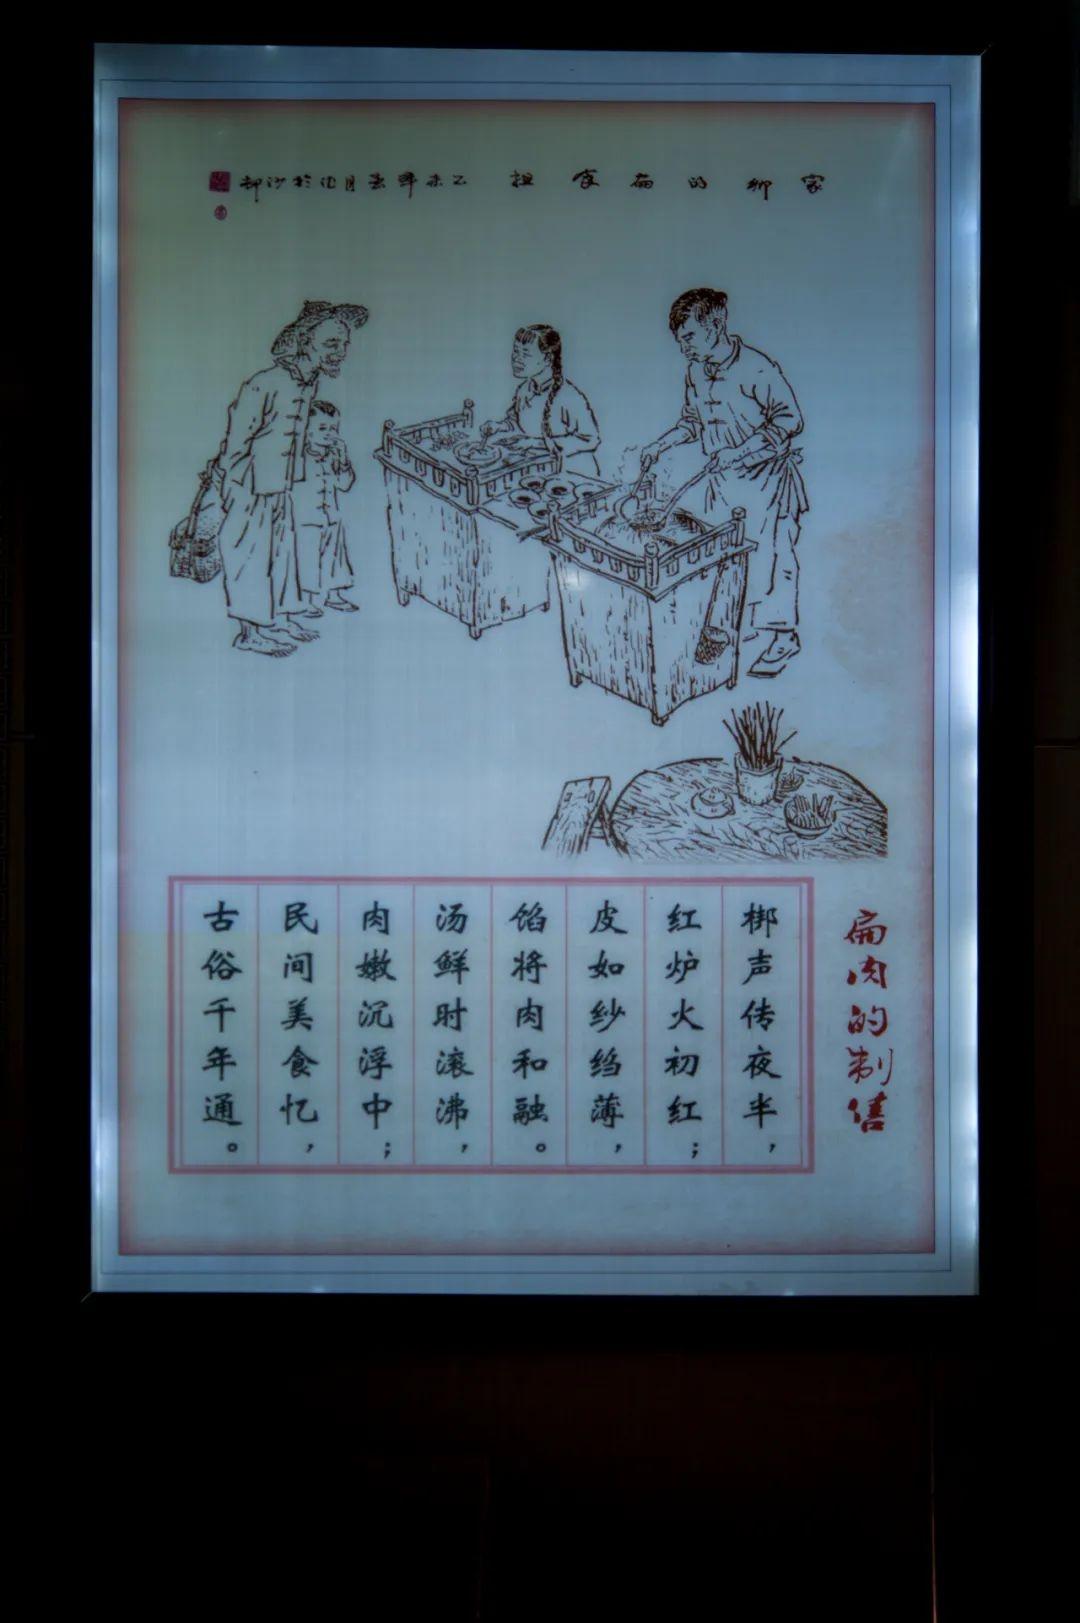 家乡的扁食担 乙未年春月作於沙
扁肉的制售
梆声传夜半，
红炉火初红；
皮如纱绉薄，
馅将肉和融。
汤鲜时滚沸，
肉嫩沉浮中；
民间美食忆，
古俗千年通。